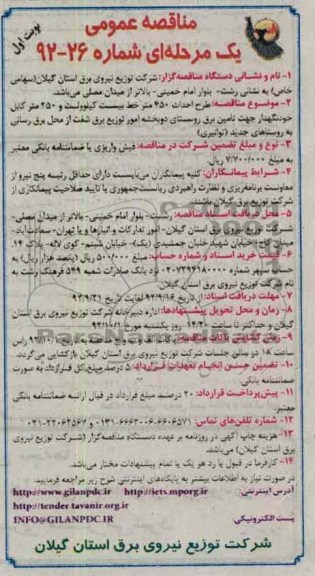 مناقصه عمومی
یک مرحله‌ای شماره ۲۶-۹۲
نوبت اول
۱- نام و نشانی دستگاه مناقصه‌گزار: شرکت توزیع نیروی برق استان گیلان(سهامی
خاص) به نشانی رشت- بلوار امام خمینی- بالاتر از میدان مصلی می‌باشد.
۲- موضوع مناقصه: طرح احداث ۴۵۰ متر خط بیست کیلوولت و ۲۵۰ متر کابل
خودنگهدار جهت تامین برق روستای دوبخشه امور توزیع برق شفت از محل برق رسانی
به روستاهای جدید (توانیر)
۳- نوع و مبلغ تضمین شرکت در مناقصه: فیش واریزی یا ضمانتنامه بانکی معتبر
به مبلغ ۷/۷۰۰/۰۰۰ ریال.
۴- شرایط پیمانکاران: کلیه پیمانکاران می‌بایست دارای حداقل رتبه پنج نیرو از
معاونت برنامه‌ریزی و نظارت راهبردی ریاست‌جمهوری یا تایید صلاحیت پیمانکاری از
شرکت توزیع برق گیلان باشند.
۵- محل دریافت اسناد مناقصه: رشت- بلوار امام خمینی- بالاتر از میدان مصلی-
شرکت توزیع نیروی برق استان گیلان- امور تدارکات و انبارها و یا تهران- سعادت‌آباد-
میدان کاج- خیابان شهید خلبان جمشیدی (یک)- خیابان ششم- کوی لاله- پلاک ۱۴.
۶- قیمت خرید اسناد و شماره حساب: مبلغ ۵۰۰/۰۰۰ ریال (پانصد هزار ریال) به
حساب سپهر شماره نزد بانک صادرات شعبه ۵۴۹ فرهنگ رشت به
نام شرکت توزیع نیروی برق استان گیلان.
۷- مهلت دریافت اسناد: از تاریخ ۹۲/۹/۱۶ لغایت تاریخ ۹۲/۹/۲۱
۸- زمان و محل تحویل پیشنهادها: اداره دبیرخانه شرکت توزیع نیروی برق استان
گیلان و حداکثر تا ساعت ۱۴/۳۰ روز یکشنبه مورخ
ساعت ۱۸ در سالن جلسات شرکت توزیع نیروی برق استان گیلان بازگشایی می‌گردد.
۱۰- تضمین حسن انجام تعهدات قرارداد: ۵ درصد مبلغ کل قرارداد به صورت
ضمانتنامه بانکی.
۱۱- پیش‌پرداخت قرارداد: ۲۰ درصد مبلغ قرارداد در قبال ارائه ضمانتنامه بانکی
معتبر.
۱۲- شماره تلفن‌های تماس:
۱۳- هزینه چاپ آگهی در روزنامه بر عهده دستگاه مناقصه‌گزار (شرکت توزیع نیروی
برق استان گیلان) می‌باشد.
۱۴- کارفرما در قبول یا رد هر یک یا تمام پیشنهادات مختار می‌باشد.
در صورت نیاز به اطلاعات بیشتر به پایگاه‌های اینترنتی شرح زیر مراجعه فرمایید.
آدرس اینترنتی: http://iets.mporg.ir http://www.gilanpdc.ir
http://tender.tavanir.org.ir
پست الکترونیکی INFO@GILANPDC.IR
شرکت توزیع نیروی برق استان گیلان